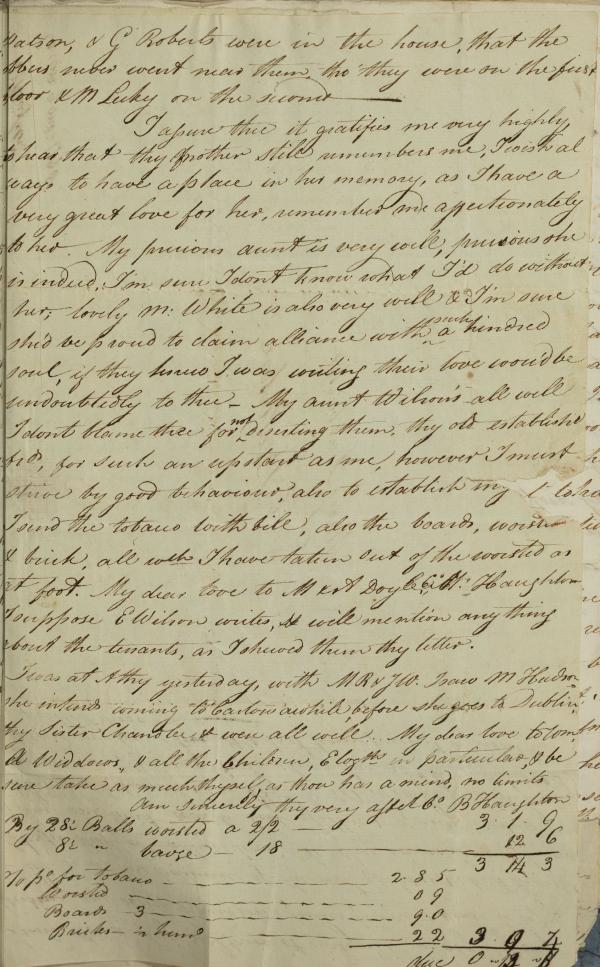 Watson, & G Roberts were in the house, that the
never went near them, tho' they were on the first
floor & M Lecky on the second
I assure thee it gratifies me very highly
to hear that thy Mother still remembers me, I wish al
ways to have a place in her memory, as I have a
very great love for her, remember me affectionately
to her. My precious aunt is very well, precious she
is indeed, I'm sure I dont know what I'd do without
her, lovely M: White is also very well & I'm sure
she'd be proud to claim alliance with such a kindred
soul, if they knew I was writing their love wou'd be
undoubtedly to thee - My aunt Wilson's all well
I dont blame thee for not deserting them, thy old establish'd
frds, for such an upstart as me, however I must
strive by good behaviour, also to establish my
I send the tobaco with bill, also the boards, worsted
& brick, all wch I have taken out of the worsted as
at foot. My dear love to M & A Doyle, Haughton
I suppose E Wilson writes, & will mention anything
about the tenants, as I shewed them thy letter.
I was at Athy yesterday, with MR & JW. I saw M Hudson
she intends coming to Carlow awhile, before she goes to Dublin,
thy Sister Chandler & were all well My dear love to
A Widdows, & all the Children, Elizth in particular, & be
sure take as much thyself as thou has a mind, no limits
am sincerely thy very affet Cn B Haughton
By 28: Balls worsted a 2/2 — 3 . 1 . 9
8: " — 18 — 12 6
3 14 3
pd for tobaco — 2. 8 5
Worsted — 0 9
Boards - 3 — 9. 0
Bricks — 2 2 3 . 0 .
due 0